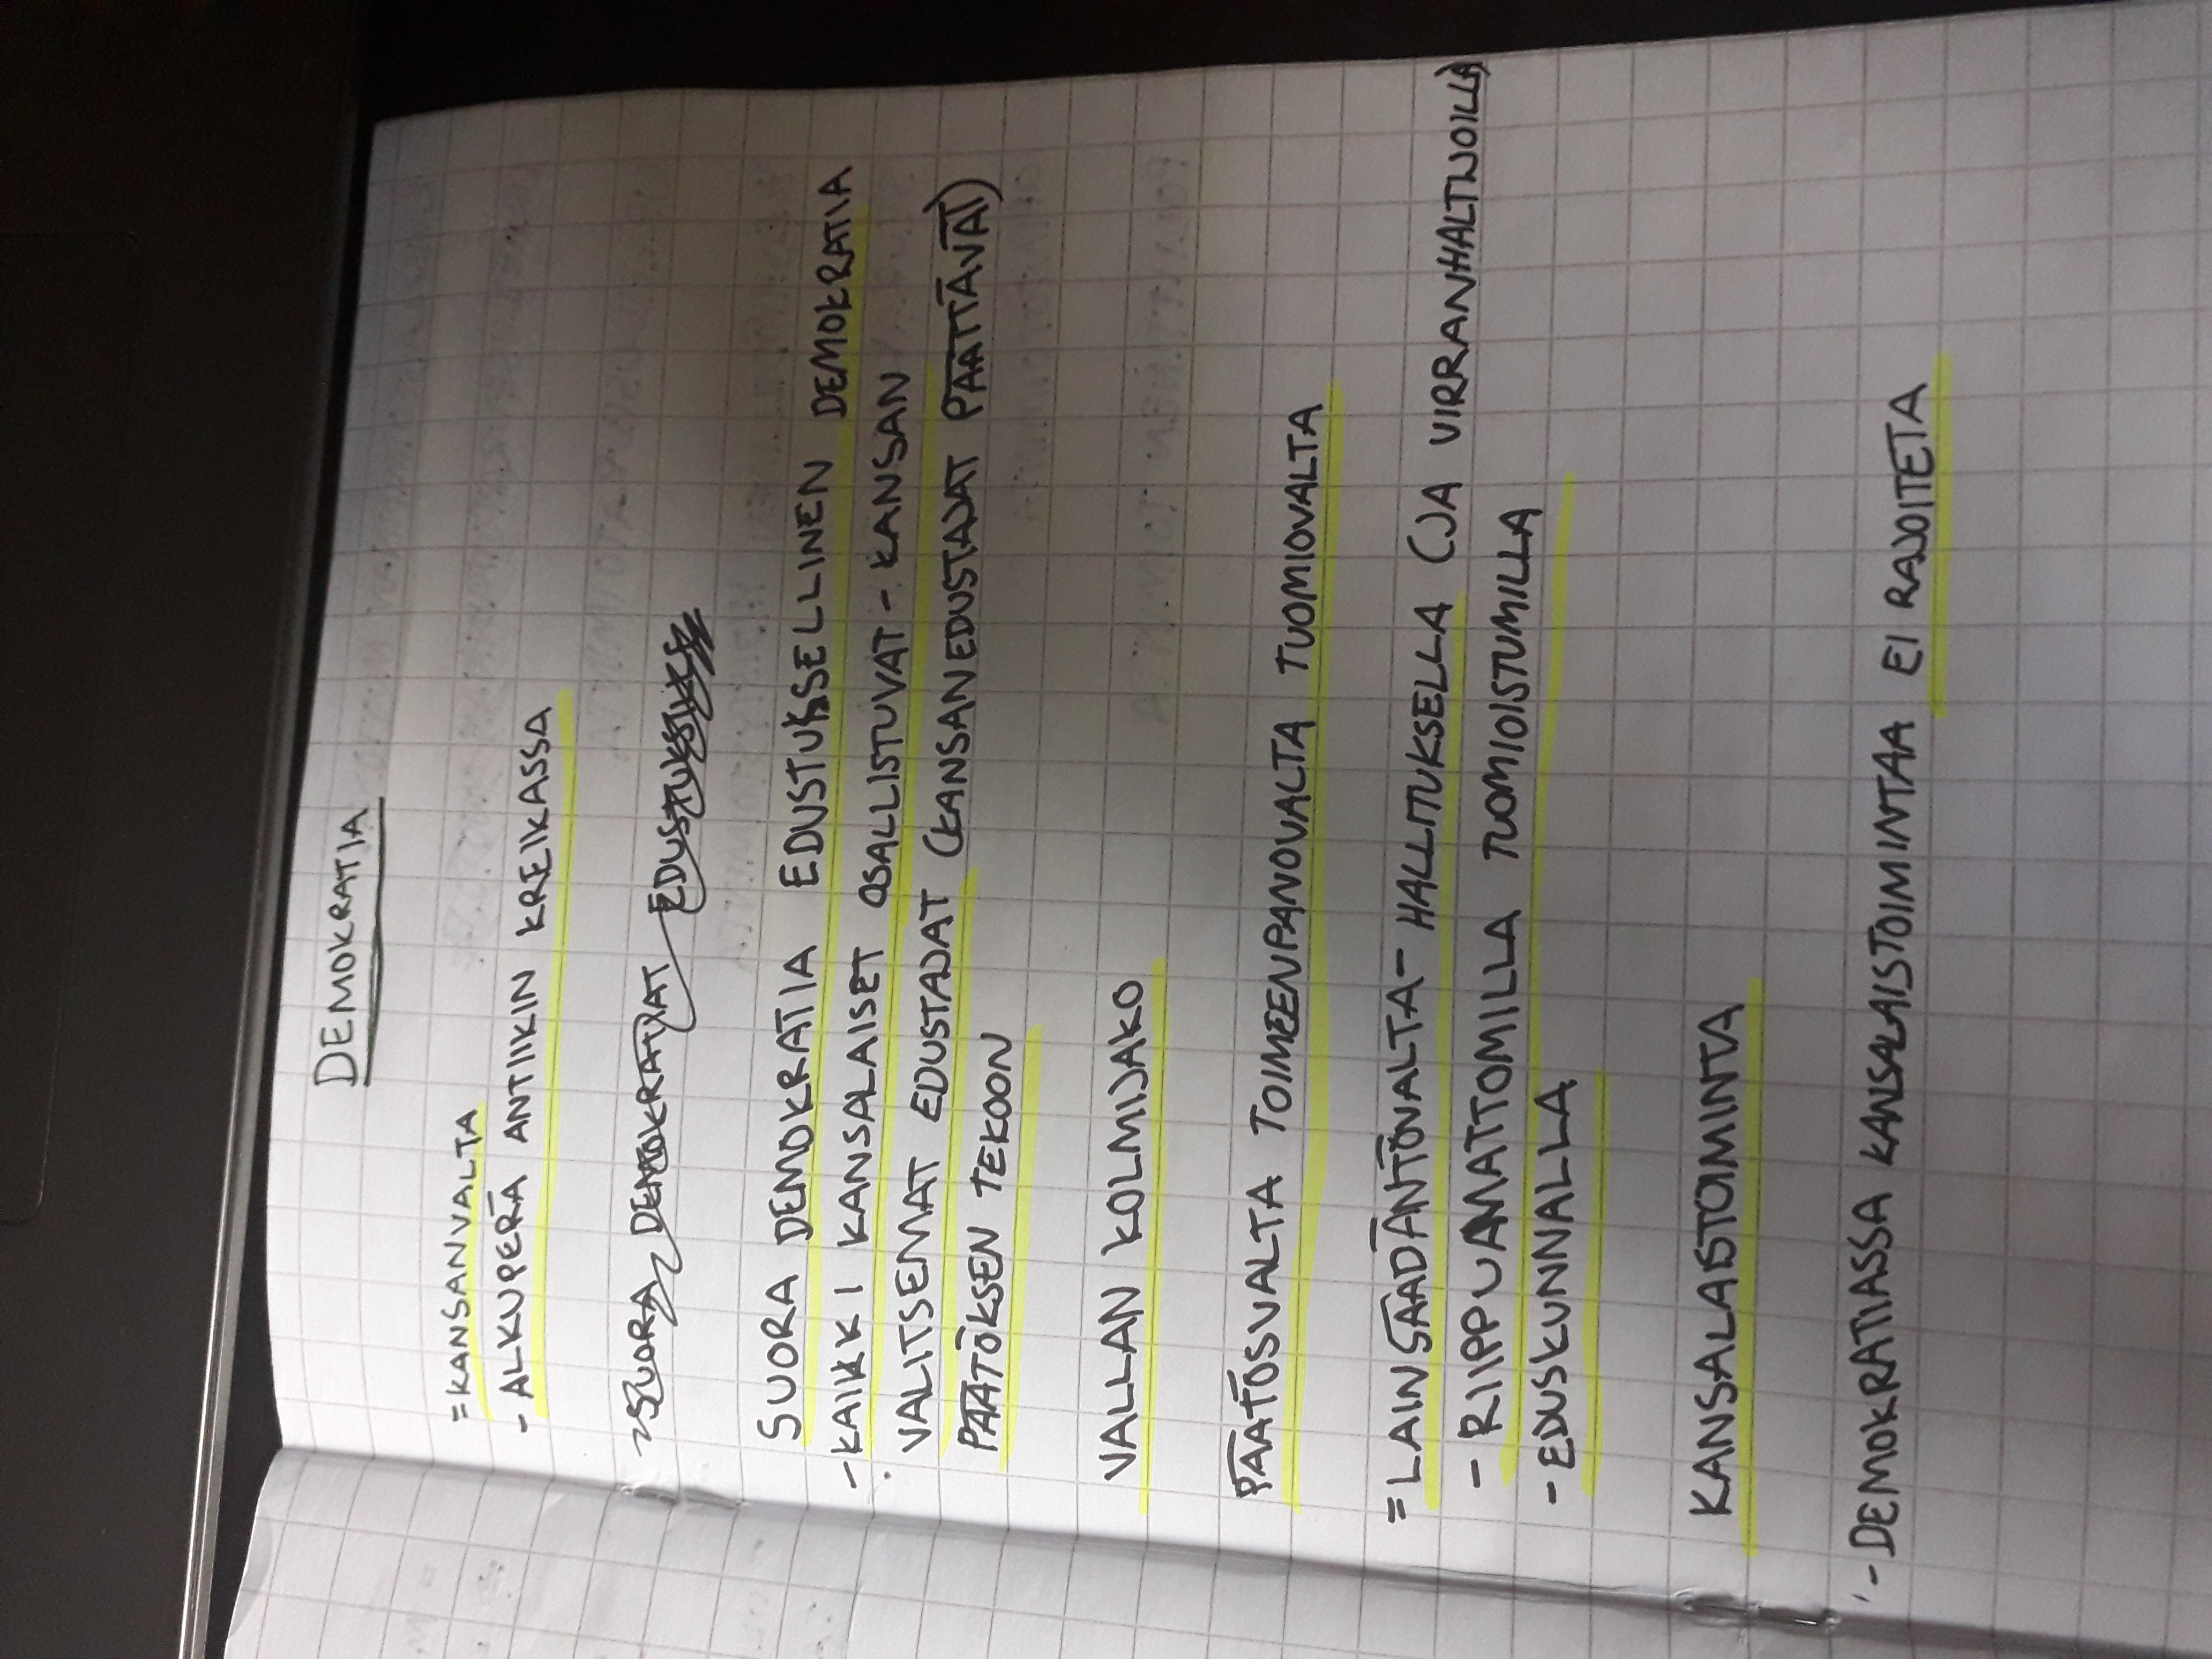 DEMOKRATIA
=KANSANVALTA
- ALKUPERÄ ANTIIKIN KREIKASSA
SUORA DEMOKRATIA EDUSTUKSELLINEN DEMOKRATIA
-KAIKKI KANSALAISET OSALLISTUVAT - KANSAN
VALITSEMAT EDUSTAJAT (KANSANEDUSTAJAT PÄÄTTÄVÄT)
PÄÄTÖKSEN TEKOON
VALLAN KOLMIJAKO
PÄÄTÖSVALTA TOIMEENPANOVALTA TUOMIOVALTA
=LAINSÄÄDÄNTÖVALTA- HALLITUKSELLA (JA VIRRANHALTIJOILLA)
- RIIPPUAMATTOMILLA TUOMIOISTUMILLA
- EDUSKUNNALLA
KANSALAISTOIMINTA
- DEMOKRATIASSA KANSALAISTOIMINTAA EI RAJOITETA